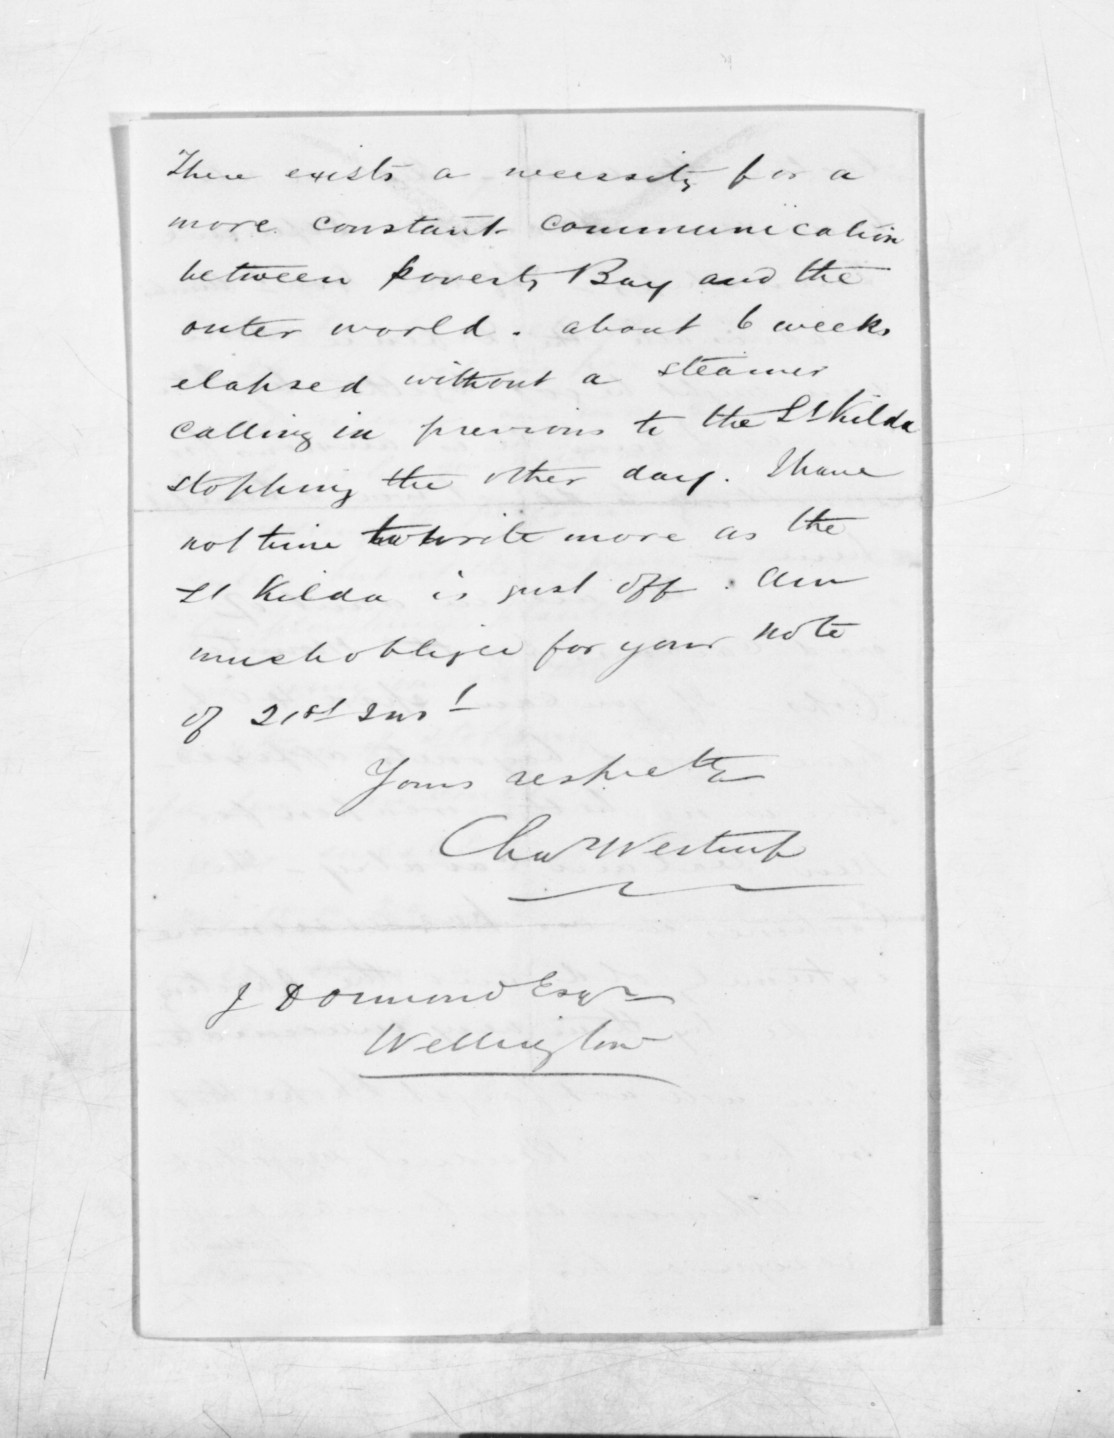 There exists a necessity for a
more constant communication
between Poverty Bay and the
outer world. about 6 weeks
elapsed without a steamer
calling in previous to the St Kilda
stopping the other day. I have
not time to write more as the
St Kilda is just off. Am
much obliged for your note
of 21st Inst
Yours respectfy
Chas Westrup
J D Ormond Esqr
Wellington